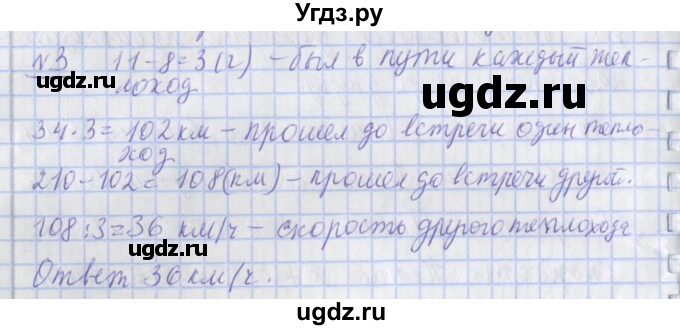 Угдз.ру
№3 11-8=3(ч) - был в пути каждый теп-
лоход
ugdz.ru
34·3=102км - прошел до встречи один тепло-
ход
ugdz.ru ugdz.ru
210-102=108(км) - прошел до встречи другой.
108:3=36 км/ч - скорость другого теплохода
Ответ 36км/ч.
ugdz.ru ugdz.ru